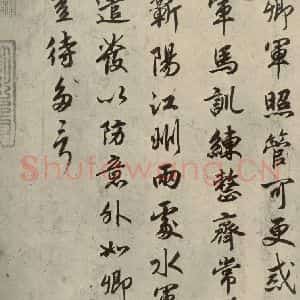 卿軍照管可更或
軍馬訓練整齊常
蘄陽江州兩處水軍
遣發以防意外如卿
豈待多言
Shufawang.CN